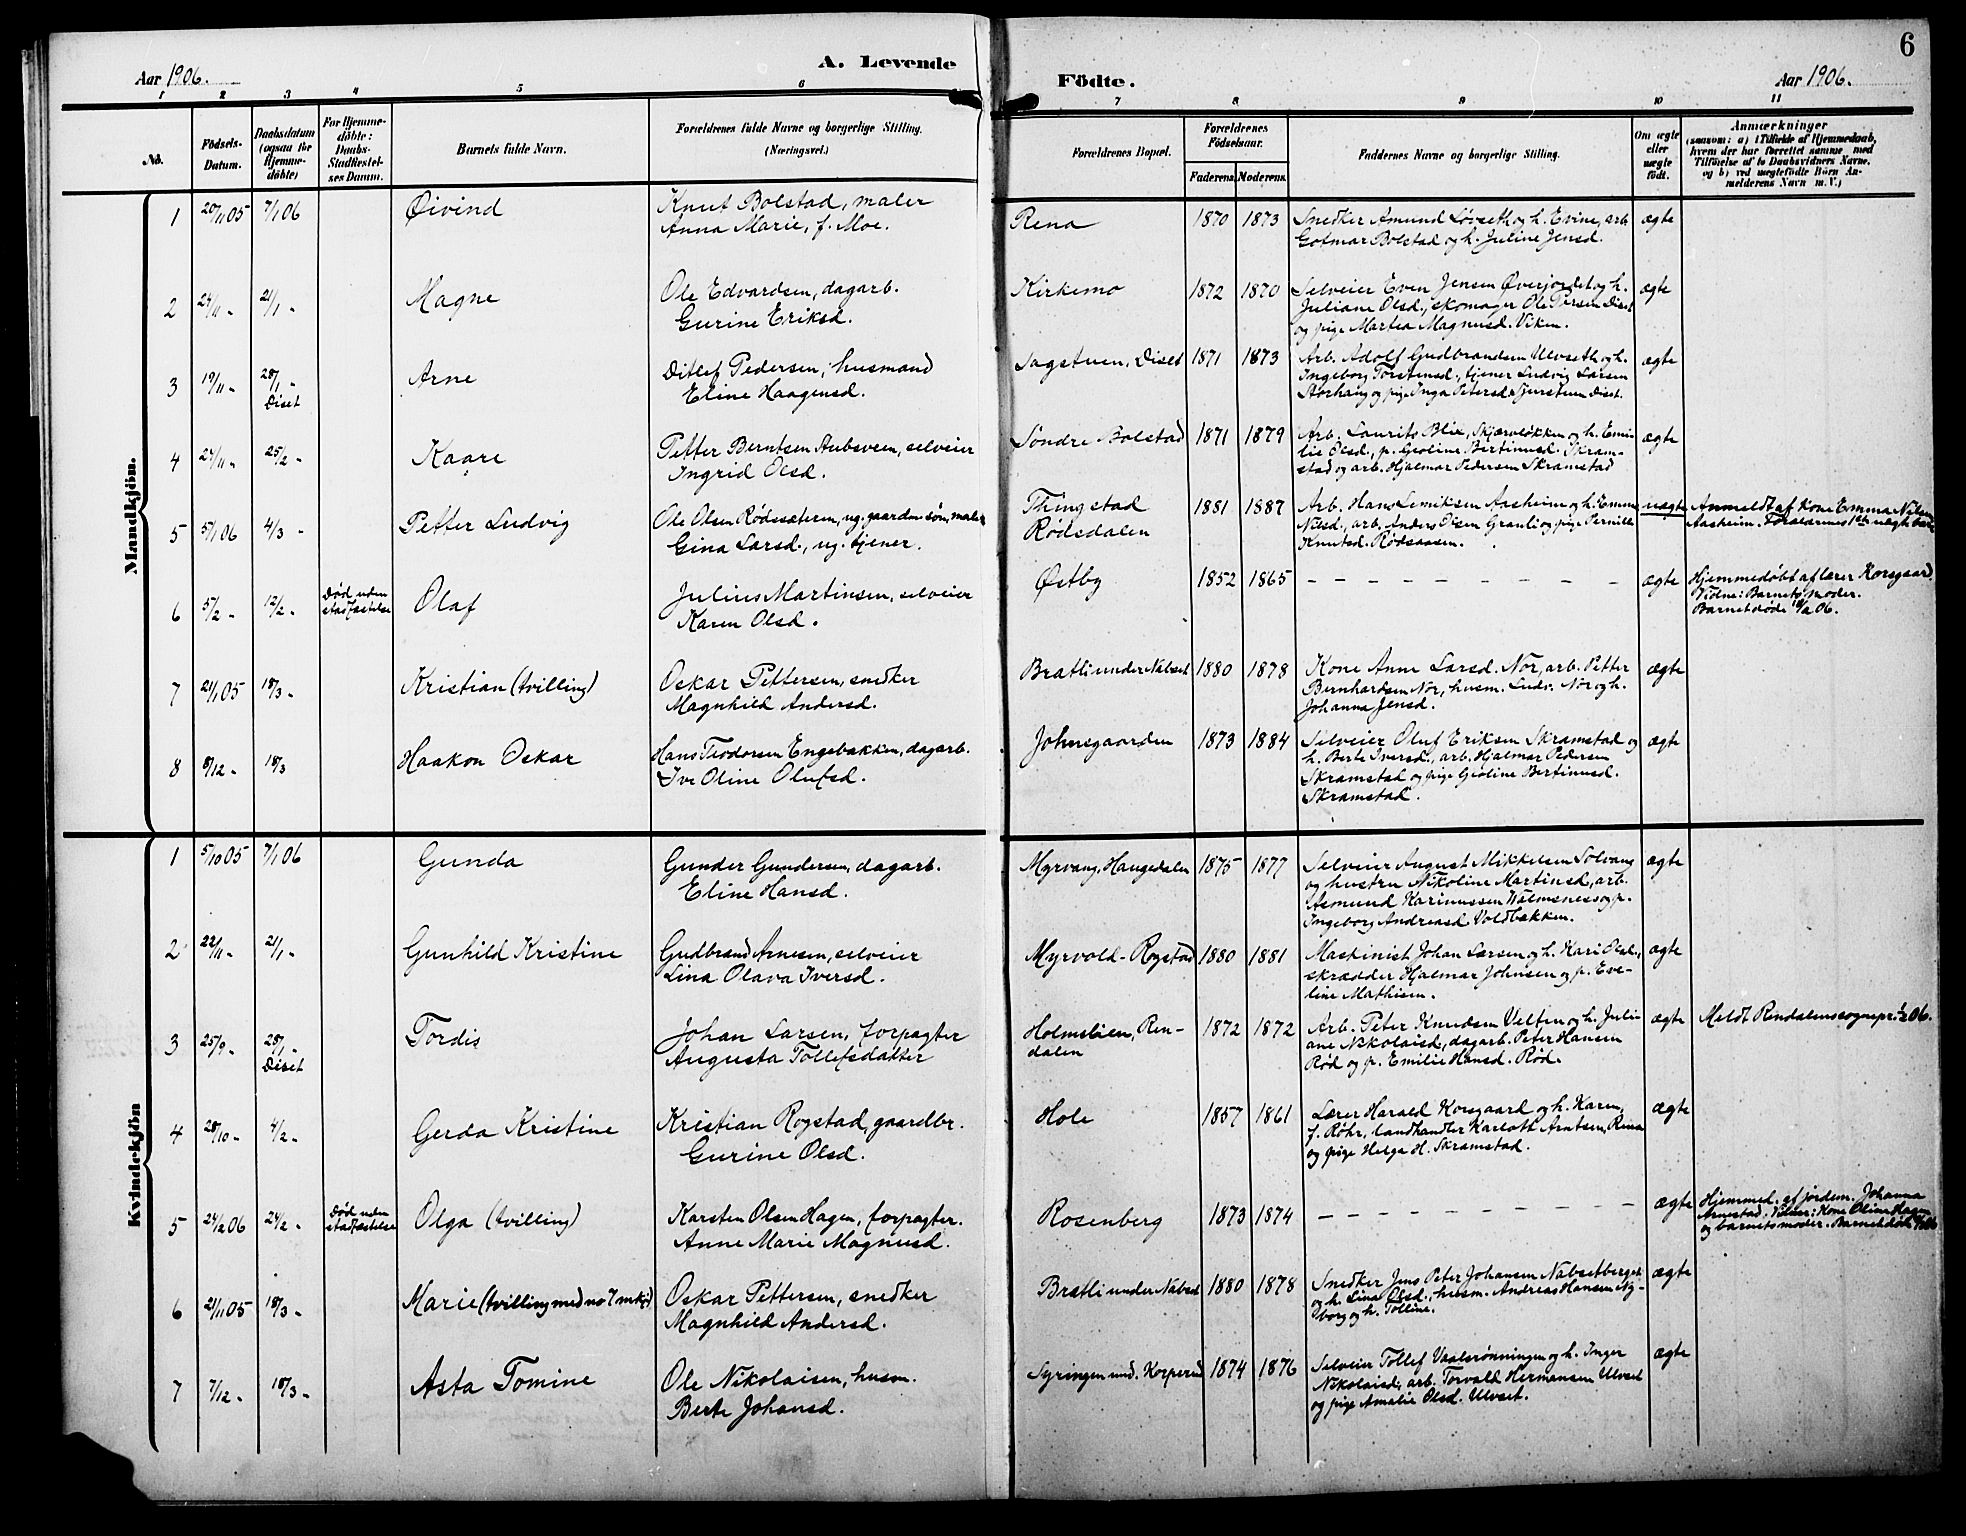 6
Aar 1906.
A. Levende
Födte.
Aar 1906.
1 2 3 4 5 6 7 8 9 10 11
No.
Födsels-
Datum.
Daabsdatum
(ogsaa for
Hjemme-
döbte)
For Hjemme-
döbte:
Daabs-
Stadfæstel-
ses Datum.
Barnets fulde Navn.
Forældrenes fulde Navne og borgerlige Stilling.
(Næringsvei.)
Forældrenes Bopæl.
Forældrenes
Födselsaar.
Faderens. Moderens.
Faddernes Navne og borgerlige Stilling.
Om ægte
eller
uægte
födt.
Anmærkninger
(saasom: a) i Tilfælde af Hjemmedaab,
hvem der har forrettet samme med
Tilföielse af to Daabsvidners Navne,
og b) ved uægtefödte Börn An-
melderens Navn m. V.)
Mandkjön.
1 20/11 05 7/1 06 Øivind
Knut Bolstad, maler
Anna Marie, f. Moe.
Rena 1870 1873
Snedker Amund Løvseth og h. Evine, arb.
Gotmar Bolstad og h. Juline Jensd.
ægte
2 24/11 - 21/1 - Magne
Ole Edvardsen, dagarb.
Gurine Eriksd.
Kirkemo 1872 1870
Selveier Even Jensen Øverjordet og h.
Juliane Olsd., skomager Ole Persen Diset
og pige Martea Magnusd. Viken.
ægte
3 19/11 - 28/1 -
Diset
Arne
Ditlef Pedersen, husmand
Eline Haagensd.
Sagstuen, Diset 1871 1873
Arb. Adolf Gudbrandsen Ulvseth og h.
Ingeborg Torstensd., tjener Ludvig Larsen
Storhaug og pige Inga Petersd. Tjurstuen Diset.
ægte
4 24/11 - 25/2 - Kaare
Petter Berntsen Aubsveen, selveier
Ingrid Olsd.
Søndre Bolstad 1871 1879
Arb. Laurits Blix, Skjærvløkken og h. Emi-
lie Olsd., p. Geoline Bertinusd. Skram-
stad og arb. Hjalmar Pedersen Skramstad
ægte
5 5/1 06 4/3 - Petter Ludvig
Ole Olsen Rødssæteren, ug. gaardm. søn, maler
Gina Larsd., ug. tjener.
Thingstad
Rødsdalen
1881 1887
Arb. Hans Lemiksen Aasheim og h. Emma
Nilsd., arb. Anders Olsen Granli og pige Pernille
Knutsd. Rødsaasen.
uægte
Anmeldt af kone Emma Nilsd.
Aasheim. Forældrenes 1ste uægte barn
6 5/2 - 12/2 -
Død uden
stadfæstelse
Olaf
Julius Martinsen, selveier
Karen Olsd.
Østby 1852 1865
— — — — — — — — — —
ægte
Hjemmedøbt af lærer Korsgaard.
Vidne: Barnets moder.
Barnet døde 18/2 06.
7 21/11 05 18/3 - Kristian (tvilling)
Oskar Pettersen, snedker
Magnhild Andersd.
Bratli under Nabset 1880 1878
Kone Anne Larsd. Nor, arb. Petter
Bernhardsen Nor, husm. Ludv. Nor og h.
Johanna Jensd.
ægte
8 8/12 - 18/3 Haakon Oskar
Hans Teodorsen Engebakken, dagarb.
Ive Oline Olufsd.
Johnsgaarden 1873 1884
Selveier Oluf Eriksen Skramstad og
h. Berte Iversd., arb. Hjalmar Pedersen
Skramstad og pige Geoline Bertinusd.
Skramstad.
ægte
Kvindekjön
1 5/10 05 7/1 06 Gunda
Gunder Gundersen, dagarb.
Eline Hansd.
Myrvang, Haugedalen 1875 1877
Selveier August Mikkelsen Solvang
og hustru Nikoline Martinsd., arb.
Asmund Karinussen Valmenes og p.
Ingeborg Andreasd Voldbakken.
ægte
2 22/11 - 21/1 - Gunhild Kristine
Gudbrand Arnesen, selveier
Lina Olava Iversd.
Myrvold - Rogstad 1880 1881
Maskinist Johan Larsen og h. Kari Olsd.,
skrædder Hjalmar Johnsen og p. Eve-
line Mathisen.
ægte
3 25/9 - 28/1 -
Diset
Tordis
Johan Larsen, forpagter
Augusta Tollefsdatter
Holmsliien, Ren-
dalen
1872 1872
Arb. Peter Knudsen Velten og h. Juli-
ane Nikolaisd., dagarb. Peter Hansen
Rød og p. Emilie Hansd. Rød.
ægte
Meldt Rendalens sognepr. 1/2 06.
4 28/10 - 4/2 - Gerda Kristine
Kristian Rogstad, gaardbr.
Gurine Olsd.
Hole 1857 1861
Lærer Harald Korsgaard og h. Karen,
f. Röhr, landhandler Karlott Arntsen, Rena
og pige Helga H. Skramstad.
ægte
5 24/2 06 24/2 -
Død uden
stadfæstelse
Olga (tvilling)
Karsten Olsen Hagen, forpagter.
Anne Marie Magnusd.
Rosenberg 1873 1874
— — — — — — — — — —
ægte
Hjemmed. af jordem. Johanna
Arnestad. Vidner: Kone Oline Hagen
og barnets moder. Barnet døde
6 21/11 05 18/3 - Marie (tvilling med no 7 mkj)
Oskar Pettersen, snedker
Magnhild Andersd.
Bratli under Nabset 1880 1878
Snedker Jens Peter Johansen Nabsetberget
og h. Lina Olsd., husm. Andreas Hansen Ny-
borg og h. Tolline.
ægte
7 7/12 - 18/3 - Asta Tomine
Ole Nikolaisen, husm.
Berte Johansd.
Syringen und. Kopperud 1874 1876
Selveier Tollef Vaalsrønningen og h. Inger
Nikolaisd., arb. Torvald Hermansen Ulvset
og pige Amalie Olsd. Ulvset.
ægte